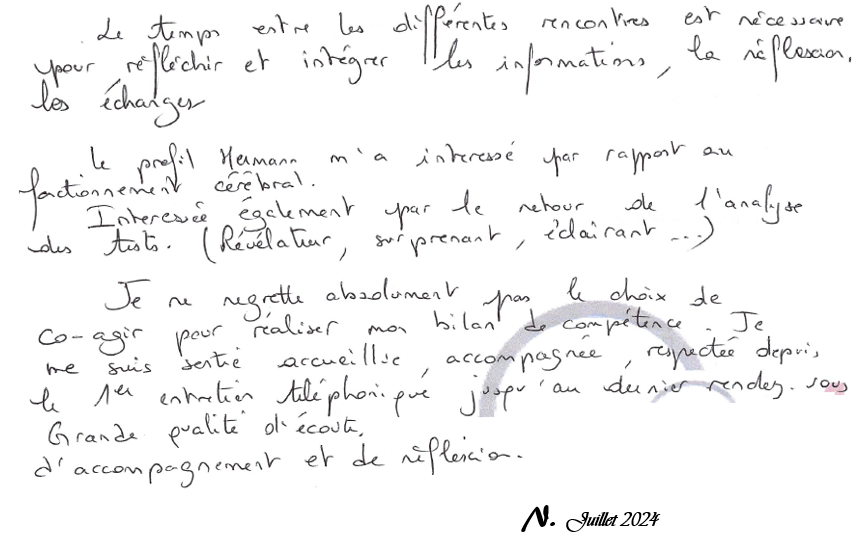 Le temps entre les différentes rencontres est nécessaire
pour réfléchir et intégrer les informations, la réflexion,
les échanges
Le profil Hermann m'a interessé par rapport au
fonctionnement cérébral.
Interessée également par le retour de l'analyse
des tests. (Révélateur, surprenant, éclairant ...)
Je ne regrette absolument pas le choix de
co-agir pour réaliser mon bilan de compétence. Je
me suis sentie accueillie, accompagnée, respectée depuis
le 1er entretien téléphonique jusqu'au dernier rendez-vous
Grande qualité d'écoute,
d'accompagnement et de réflexion.
N. Juillet 2024